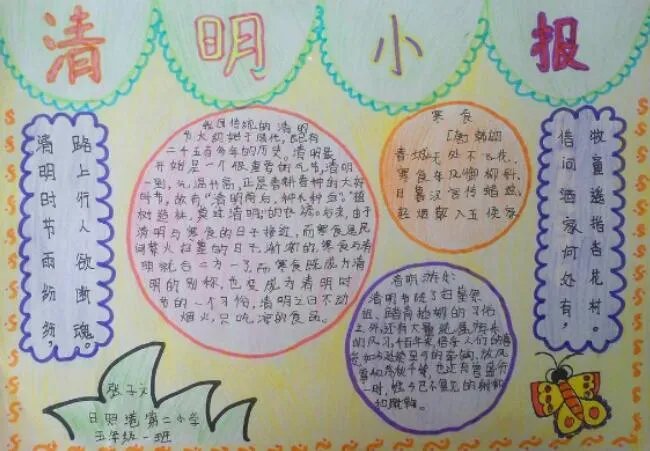 清明小报
清明时节雨纷纷，
路上行人欲断魂。
我国传统的清明
节大约始于周代，已有
二千五百多年的历史。清明最
开始是一个很重要的节气，清明
一到，气温升高，正是春耕春种的大好
时节，故有“清明前后，种瓜种豆”。“植
树造林，莫过清明”的农谚。后来，由于
清明与寒食的日子接近，而寒食是民
间禁火扫墓的日子，渐渐的，寒食与清
明就合二为一了，而寒食既成为清
明的别称，也变成为清明时
节的一个习俗，清明之日不动
烟火，只吃凉的食品。
寒食
「唐」韩翃
春城无处不飞花，
寒食东风御柳斜。
日暮汉宫传蜡烛，
轻烟散入五侯家
清明游玩：
清明节除了扫墓祭
祖、踏青插柳的习俗
之外，还有大量
的风习，千百年来
放风
筝和荡秋千等，也还有曾盛行
一时，
和蹴鞠。
借问酒家何处有，
牧童遥指杏花村。
张子文
日照港第二小学
五年级一班